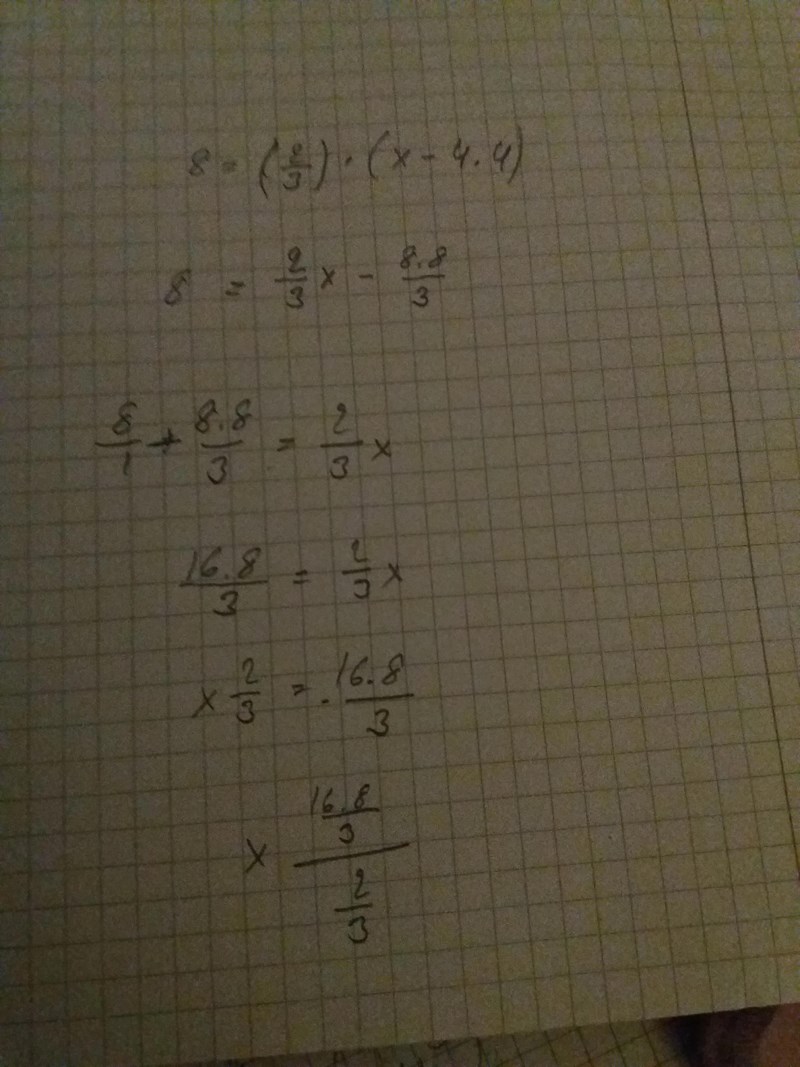 8 = (2/3) · (x - 4.4)
8 = 2/3 x - 8.8/3
8/1 + 8.8/3 = 2/3 x
16.8/3 = 2/3 x
x 2/3 = 16.8/3
x (16.8/3)/(2/3)